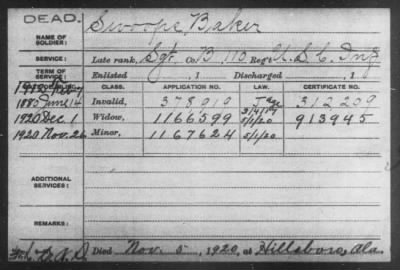 DEAD.
NAME OF SOLDIER: Swoope Baker
SERVICE: Late rank, Sgt. Co. B, 110 Reg't U.S.C. Inf
TERM OF SERVICE: Enlisted , 1 Discharged , 1
CLASS. APPLICATION NO. LAW. CERTIFICATE NO.
1880 June 14 Invalid, 378919 Age 312209
1920 Dec 1 Widow, 1166599 5/1/20 913945
1920 Nov. 26 Minor, 1167624 5/1/20
ADDITIONAL SERVICES:
REMARKS:
Died Nov. 5, 1920, at Hillsboro, Ala.